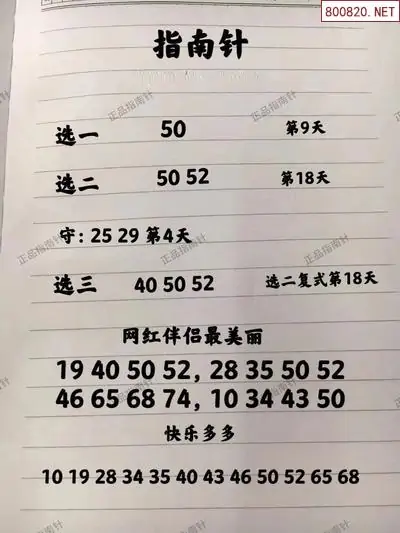 800820.NET
指南针
选一 50 第9天
选二 50 52 第18天
守：25 29 第4天
选三 40 50 52 选二复式第18天
网红伴侣最美丽
19 40 50 52, 28 35 50 52
46 65 68 74, 10 34 43 50
快乐多多
10 19 28 34 35 40 43 46 50 52 65 68
正品指南针